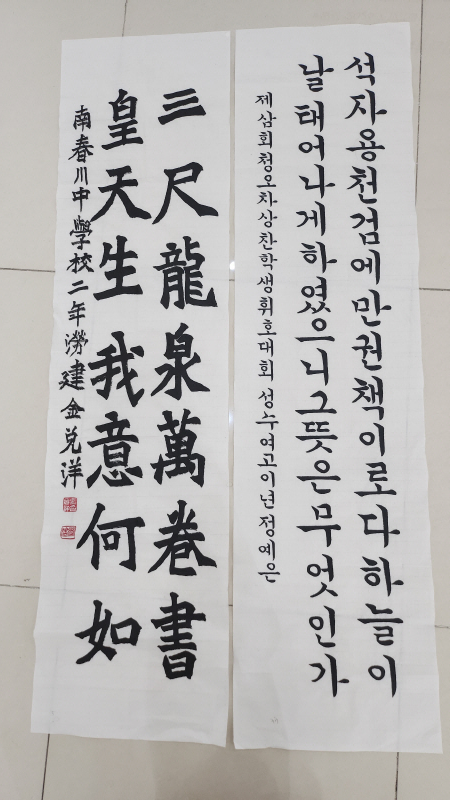 석자용천검에만권책이로다하늘이
날태어나게하였으니그뜻은무엇인가
제삼회청오차상찬학생휘호대회 성수여고이년정예은
三尺龍泉萬卷書
皇天生我意何如
南春川中學校二年澇建金兌洋